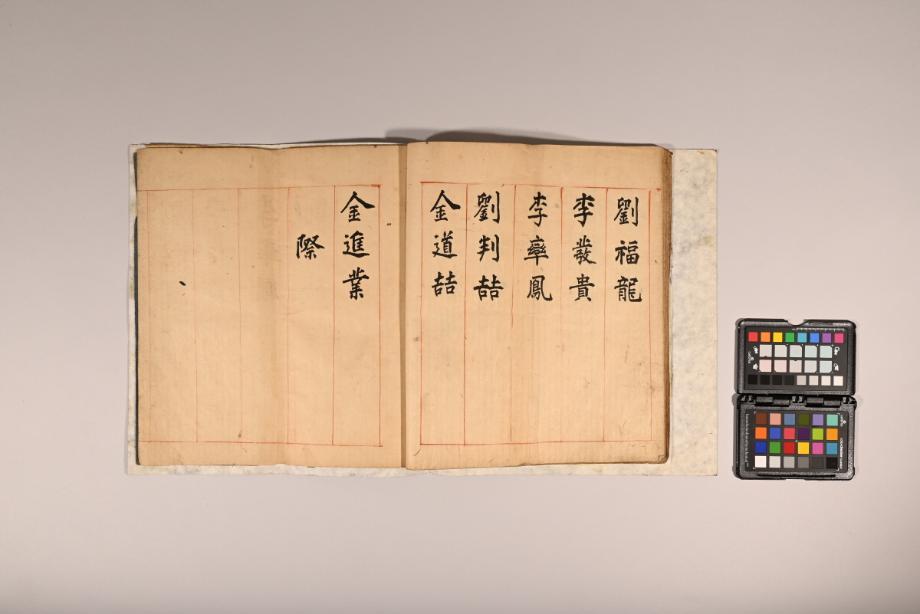 劉福龍
李發貴
李犖鳳
劉判喆
金道喆
金進業
際